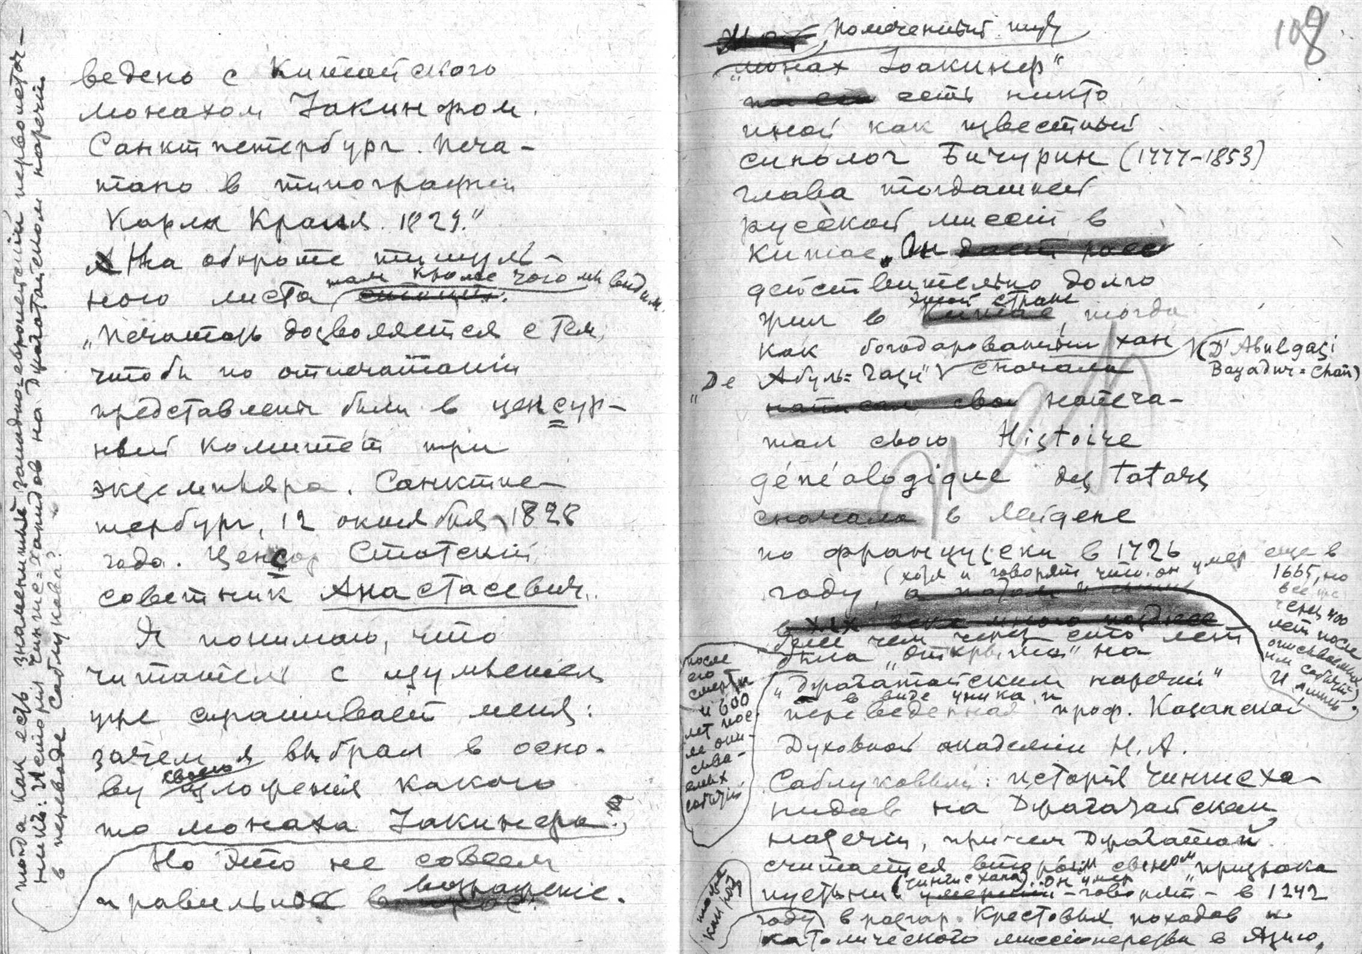 ведено с Китайского
монахом Iакинфом.
Санктпетербург. Печа-
тано в типографии
Карла Крайя. 1829."
На обороте титуль-
там кроме того мы видим
ного листа
"Печатать дозволяется с тем,
чтобы по отпечатании
представлены были в ценсур-
ный комитет три
экземпляра. Санктпе-
тербург, 12 октября 1828
года. Ценсор Статский
советник Анастасевич.
Я понимаю, что
читатель с изумлением
уже спрашивает меня:
зачем я выбрал в осно-
своего
ву изложения какого
то монаха Iакинфа?
Но это не совсем
возражение.
правильное
тогда как есть знаменитый западно-европейский первоисточ-
ник: История Чингис-Ханидов на Джагатайском наречии
в переводе Саблукова?
108
Помеченный тут
"монах Iоакинф"
есть никто
иной как известный
синолог Бичурин (1777-1853)
глава тогдашней
русской миссии в
Китае. Он
действительно долго
этой стране
жил в тогда
как богодарованный хан (D'Abulgasi
Bayadur-Chan)
"De Абуль-Гази" сначала
напеча-
тал свою Histoire
généalogique des tatars
в Лейдене
по французски в 1726
(хотя и говорят что он умер еще в
1665, но
году,
более чем через сто лет
была "открыта" на
"Джагатайском наречии"
в виде уника и
переведенная проф. Казанской
Духовной академии Н. А.
Саблуковым: история Чингиса-
нидов на Джагатайском
наречии, причем Джагатай
считается вторым сыном "призрака
Чингисхана". Он умер
пустыни говорят - в 1242
году в разгар Крестовых походов и
католического миссионерства в Азию,
через 400
лет после
описываемых
им событий.
после
его
смерти
и 600
лет пос-
ле опи-
сыва-
емых
событий
тогда
как под